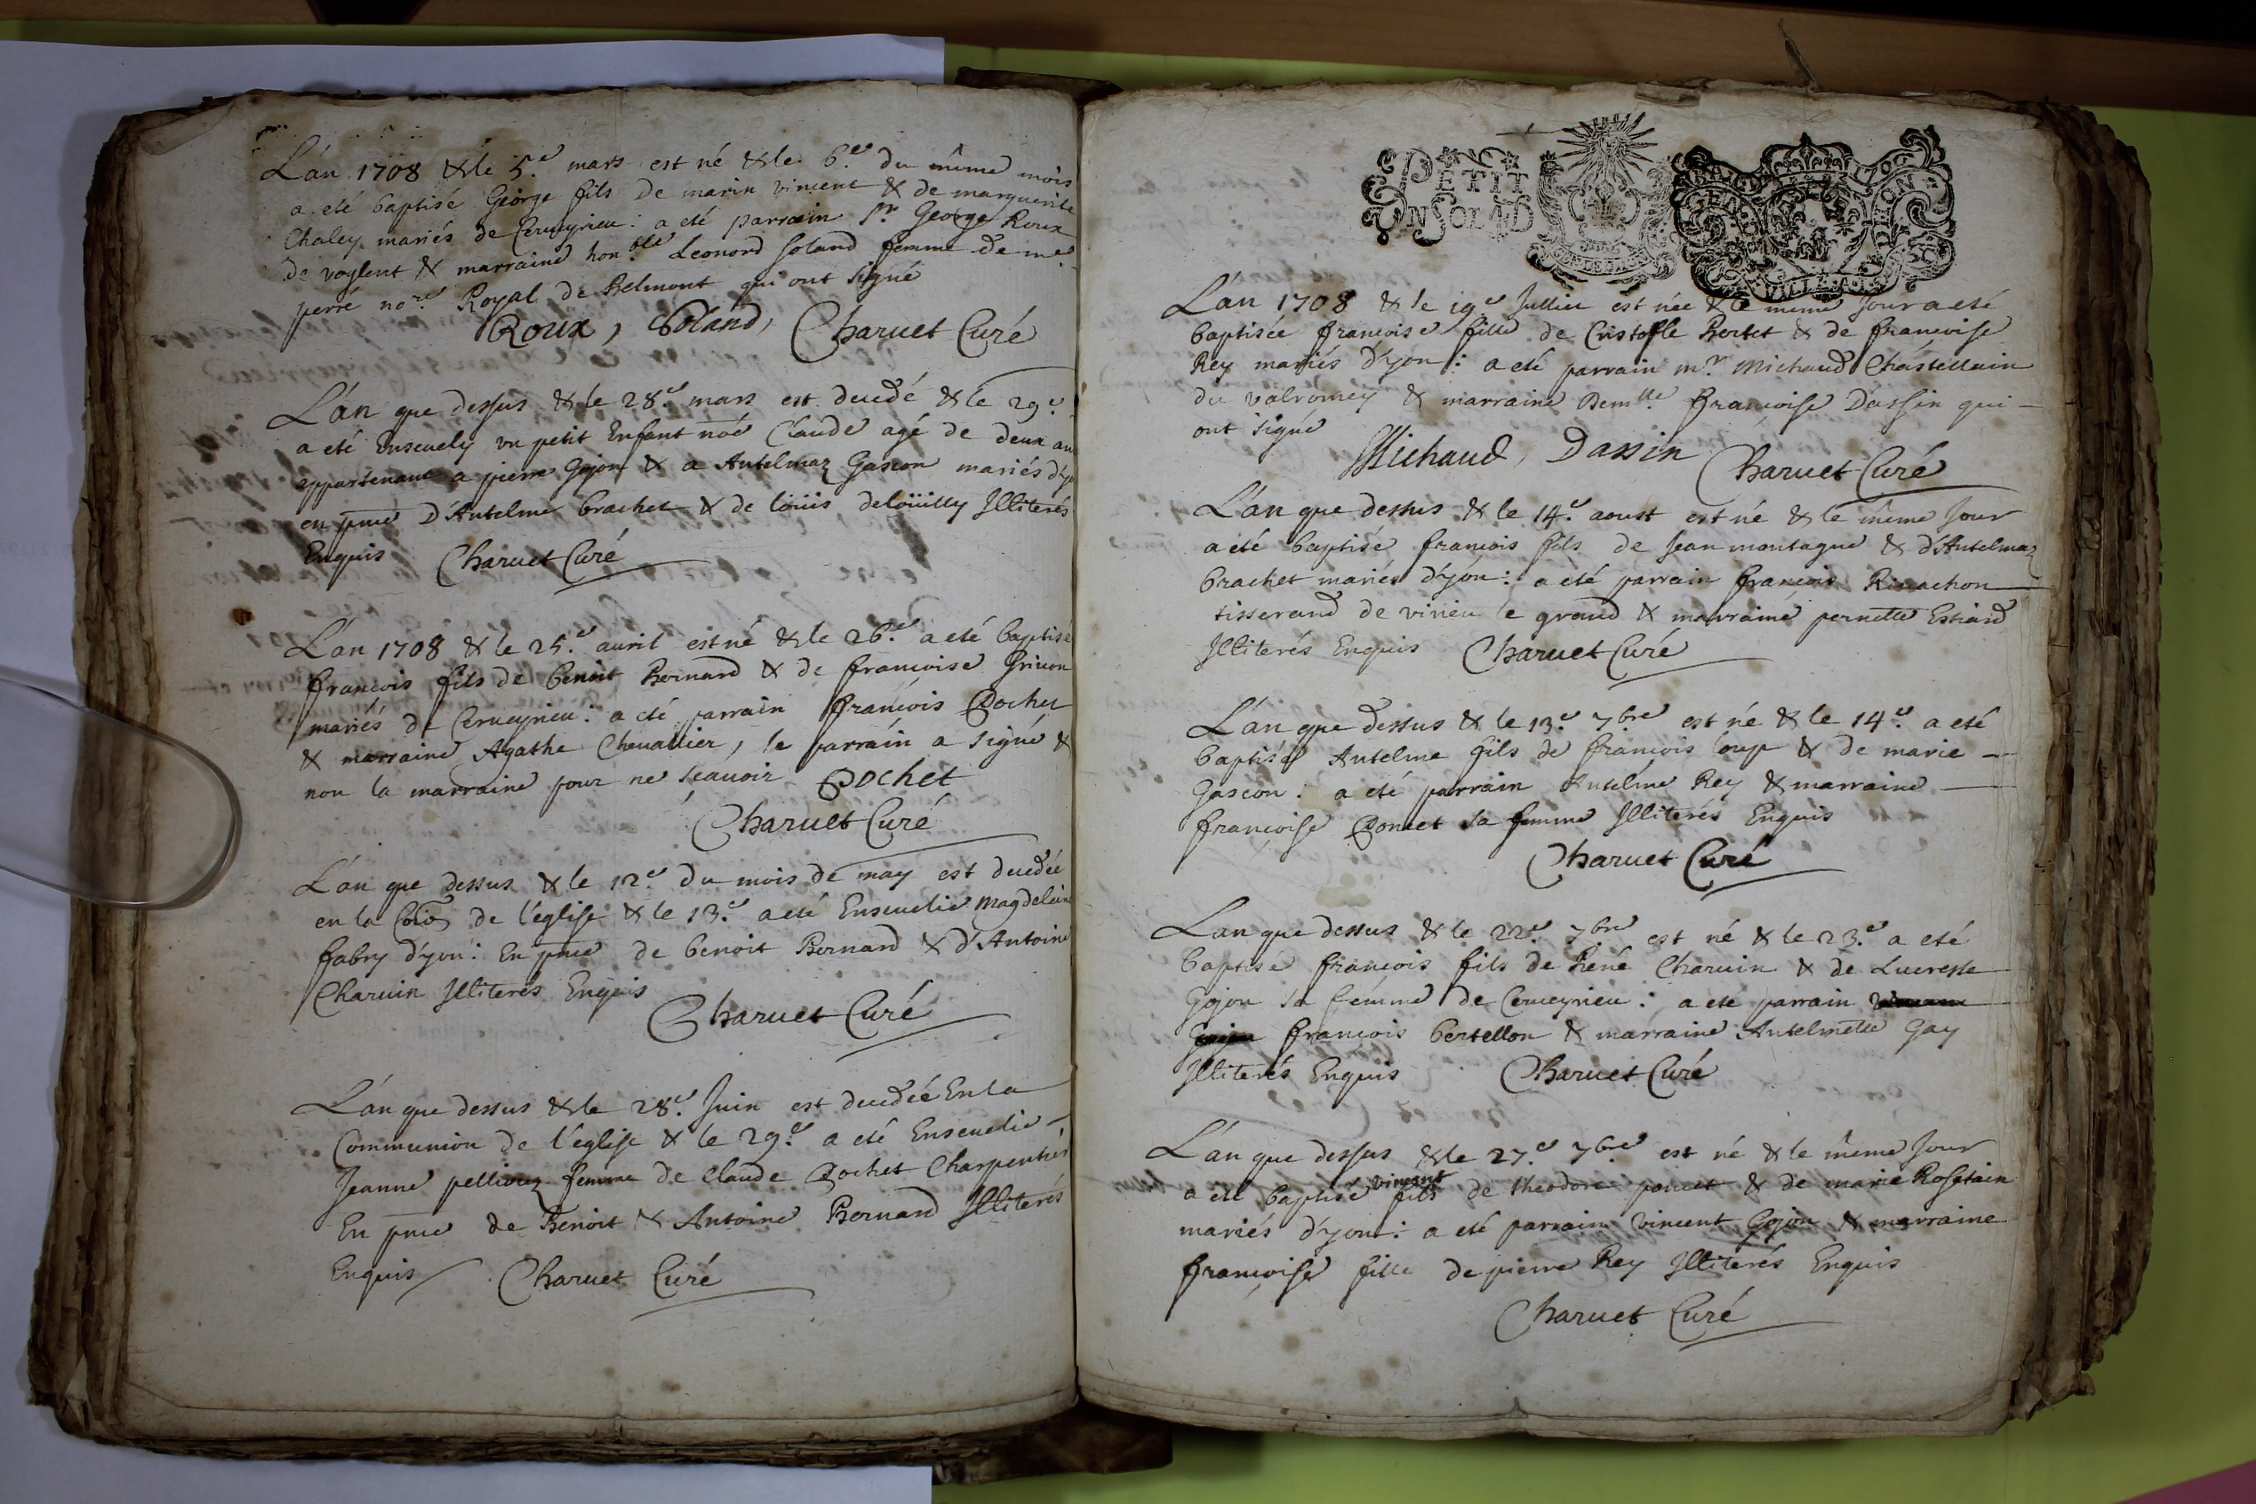 L'an 1708 & le 5.e mars est né & le 6.e du même mois
a eté baptisé George fils de marin vincent & de marguerite
Chaley mariés de Cerueyrieu : a eté parrain Sr George Roux
de voglent & marraine hon.ble Leonord Soland femme de me
perré no.re Royal de Belmont qui ont signé
Roux, Soland, Charuet Curé
L'an que dessus & le 28.e mars est decedé & le 29.e
a eté enseuely un petit Enfant nōé Claude agé de deux ans
appartenant a pierre Gojon & a Antelmaz Gascon mariés d'yon
en pn̄ce D'Antelme brachet & de loüis deloüilly Illiterés
Enquis Charuet Curé
L'an 1708 & le 25.e auril est né & le 26.e a eté baptisé
francois fils de benoit Bernard & de francoise
mariés de Cerueyrieu : a eté parrain francois Pochet
& marraine Agathe Cheuallier, le parrain a signé &
non la marraine pour ne scauoir Pochet
Charuet Curé
L'an que dessus & le 12.e du mois de may est decedée
en la Coīōn de l'eglise & le 13.e a eté Enseuelie Magdeleine
fabry d'yon : En pn̄ce de benoit Bernard & d'Antoine
Charuin Illiterés Enquis
Charuet Curé
L'an que dessus & le 28.e Juin est decedée En la
Communion de l'eglise & le 29.e a eté Enseuelie
Jeanne femme de Claude Pochet Charpentier
En pn̄ce de Benoit & Antoine Bernard Illiterés
Enquis Charuet Curé
PETIT
UN SOL
1708
L'an 1708 & le 19.e Jullieu est née & le meme Jour a eté
baptisée francoise fille de Cristofle Bertet & de francoise
Rey mariés d'yon : a eté parrain m.r Michaud Chastellain
du valromey & marraine Dem.lle francoise Dassin qui
ont signé
Michaud, Dassin Charuet Curé
L'an que dessus & le 14.e aoust est né & le même Jour
a eté baptisé francois fils de Jean montagne & d'Antelmaz
brachet mariés d'yon : a eté parrain francois
tisserand de virieu le grand & marraine pernette
Illiterés Enquis Charuet Curé
L'an que dessus & le 13.e 7bre est né & le 14.e a eté
baptisé Antelme fils de francois loup & de marie
Gascon : a eté parrain Antelme Rey & marraine
francoise Poncet sa femme Illiterés Enquis
Charuet Curé
L'an que dessus & le 22.e 7bre est né & le 23.e a eté
baptisé francois fils de René Charuin & de Lucresse
Gojon sa femme de Cerueyrieu : a eté parrain
francois bertellon & marraine Antelmette Gay
Illiterés Enquis Charuet Curé
L'an que dessus & le 27.e 7bre est né & le même Jour
a eté baptisé vincent fils de theodore poncet & de marie Rostain
mariés d'yon : a eté parrain vincent Gojon & marraine
francoise fille de pierre Rey Illiterés Enquis
Charuet Curé